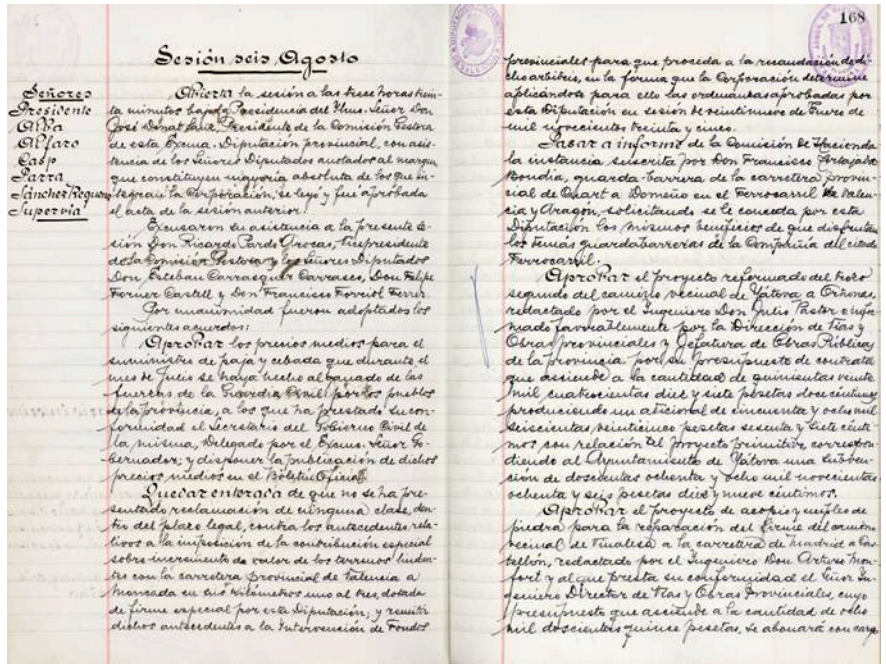 Sesión seis Agosto
Señores
Presidente
Alba
Alfaro
Casp
Parra
Sánchez Requena
Supervía
Abierta la sesión a las trece horas trein-
ta minutos bajo la Presidencia del Ilmo. Señor Don
José Donat Sanz, Presidente de la Comisión Gestora
de esta Excma. Diputación provincial, con asis-
tencia de los Señores Diputados anotados al margen
que constituyen mayoría absoluta de los que in-
tegran la Corporación, se leyó y fué aprobada
el acta de la sesión anterior.
Excusaron su asistencia a la presente se-
sión Don Ricardo Pardo Arocas, Vicepresidente
de la Comisión Gestora y los Señores Diputados
Don Esteban Carrasquer Carrasco, Don Felipe
Forner Castell y Don Francisco Forriol Ferrer.
Por unanimidad fueron adoptados los
siguientes acuerdos:
Aprobar los precios medios para el
suministro de paja y cebada que durante el
mes de Julio se haya hecho al ganado de las
fuerzas de la Guardia Civil por los pueblos
de la provincia, a los que ha prestado su con-
formidad el Secretario del Gobierno Civil de
la misma, Delegado por el Excmo. Señor Go-
bernador; y disponer la publicación de dichos
precios medios en el Boletín Oficial.
Quedar enterada de que no se ha pre-
sentado reclamación de ninguna clase, den-
tro del plazo legal, contra los antecedentes rela-
tivos a la imposición de la contribución especial
sobre incremento de valor de los terrenos lindan-
tes con la carretera provincial de Valencia a
Moncada en sus kilómetros uno al tres, dotada
de firme especial por esta Diputación; y remitir
dichos antecedentes a la Intervención de Fondos
168
provinciales para que proceda a la recaudación de di-
cho arbitrio, en la forma que la Corporación determine
aplicándose para ello las ordenanzas aprobadas por
esta Diputación en sesión de veintinueve de Enero de
mil novecientos treinta y cinco.
Pasar a informe de la Comisión de Hacienda
la instancia suscrita por Don Francisco
Bondia, guarda-barrera de la carretera provin-
cial de Cuart a Domeño en el Ferrocarril de Valen-
cia y Aragón, solicitando se le conceda por esta
Diputación los mismos beneficios de que disfrutan
los demás guardabarreras de la Compañía del citado
Ferrocarril.
Aprobar el proyecto reformado del trozo
segundo del camino vecinal de Yátova a
redactado por el Ingeniero Don Julio Pastor e infor-
mado favorablemente por la Dirección de Vías y
Obras provinciales y Jefatura de Obras Públicas
de la provincia por su presupuesto de contrata
que asciende a la cantidad de quinientas veinte
mil cuatrocientas diez y siete pesetas doce céntimos,
produciendo un adicional de cincuenta y ocho mil
seiscientas veinticinco pesetas sesenta y siete cénti-
mos con relación al proyecto primitivo correspon-
diendo al Ayuntamiento de Yátova una subven-
ción de doscientas ochenta y ocho mil novecientas
ochenta y seis pesetas diez y nueve céntimos.
Aprobar el proyecto de acopio y empleo de
piedra para la reparación del firme del camino
vecinal de Vinalesa a la carretera de Madrid a Cas-
tellón, redactado por el Ingeniero Don Arturo Mon-
fort y al que presta su conformidad el Señor In-
geniero Director de Vías y Obras Provinciales, cuyo
presupuesto que asciende a la cantidad de ocho
mil doscientas quince pesetas, se abonará con cargo